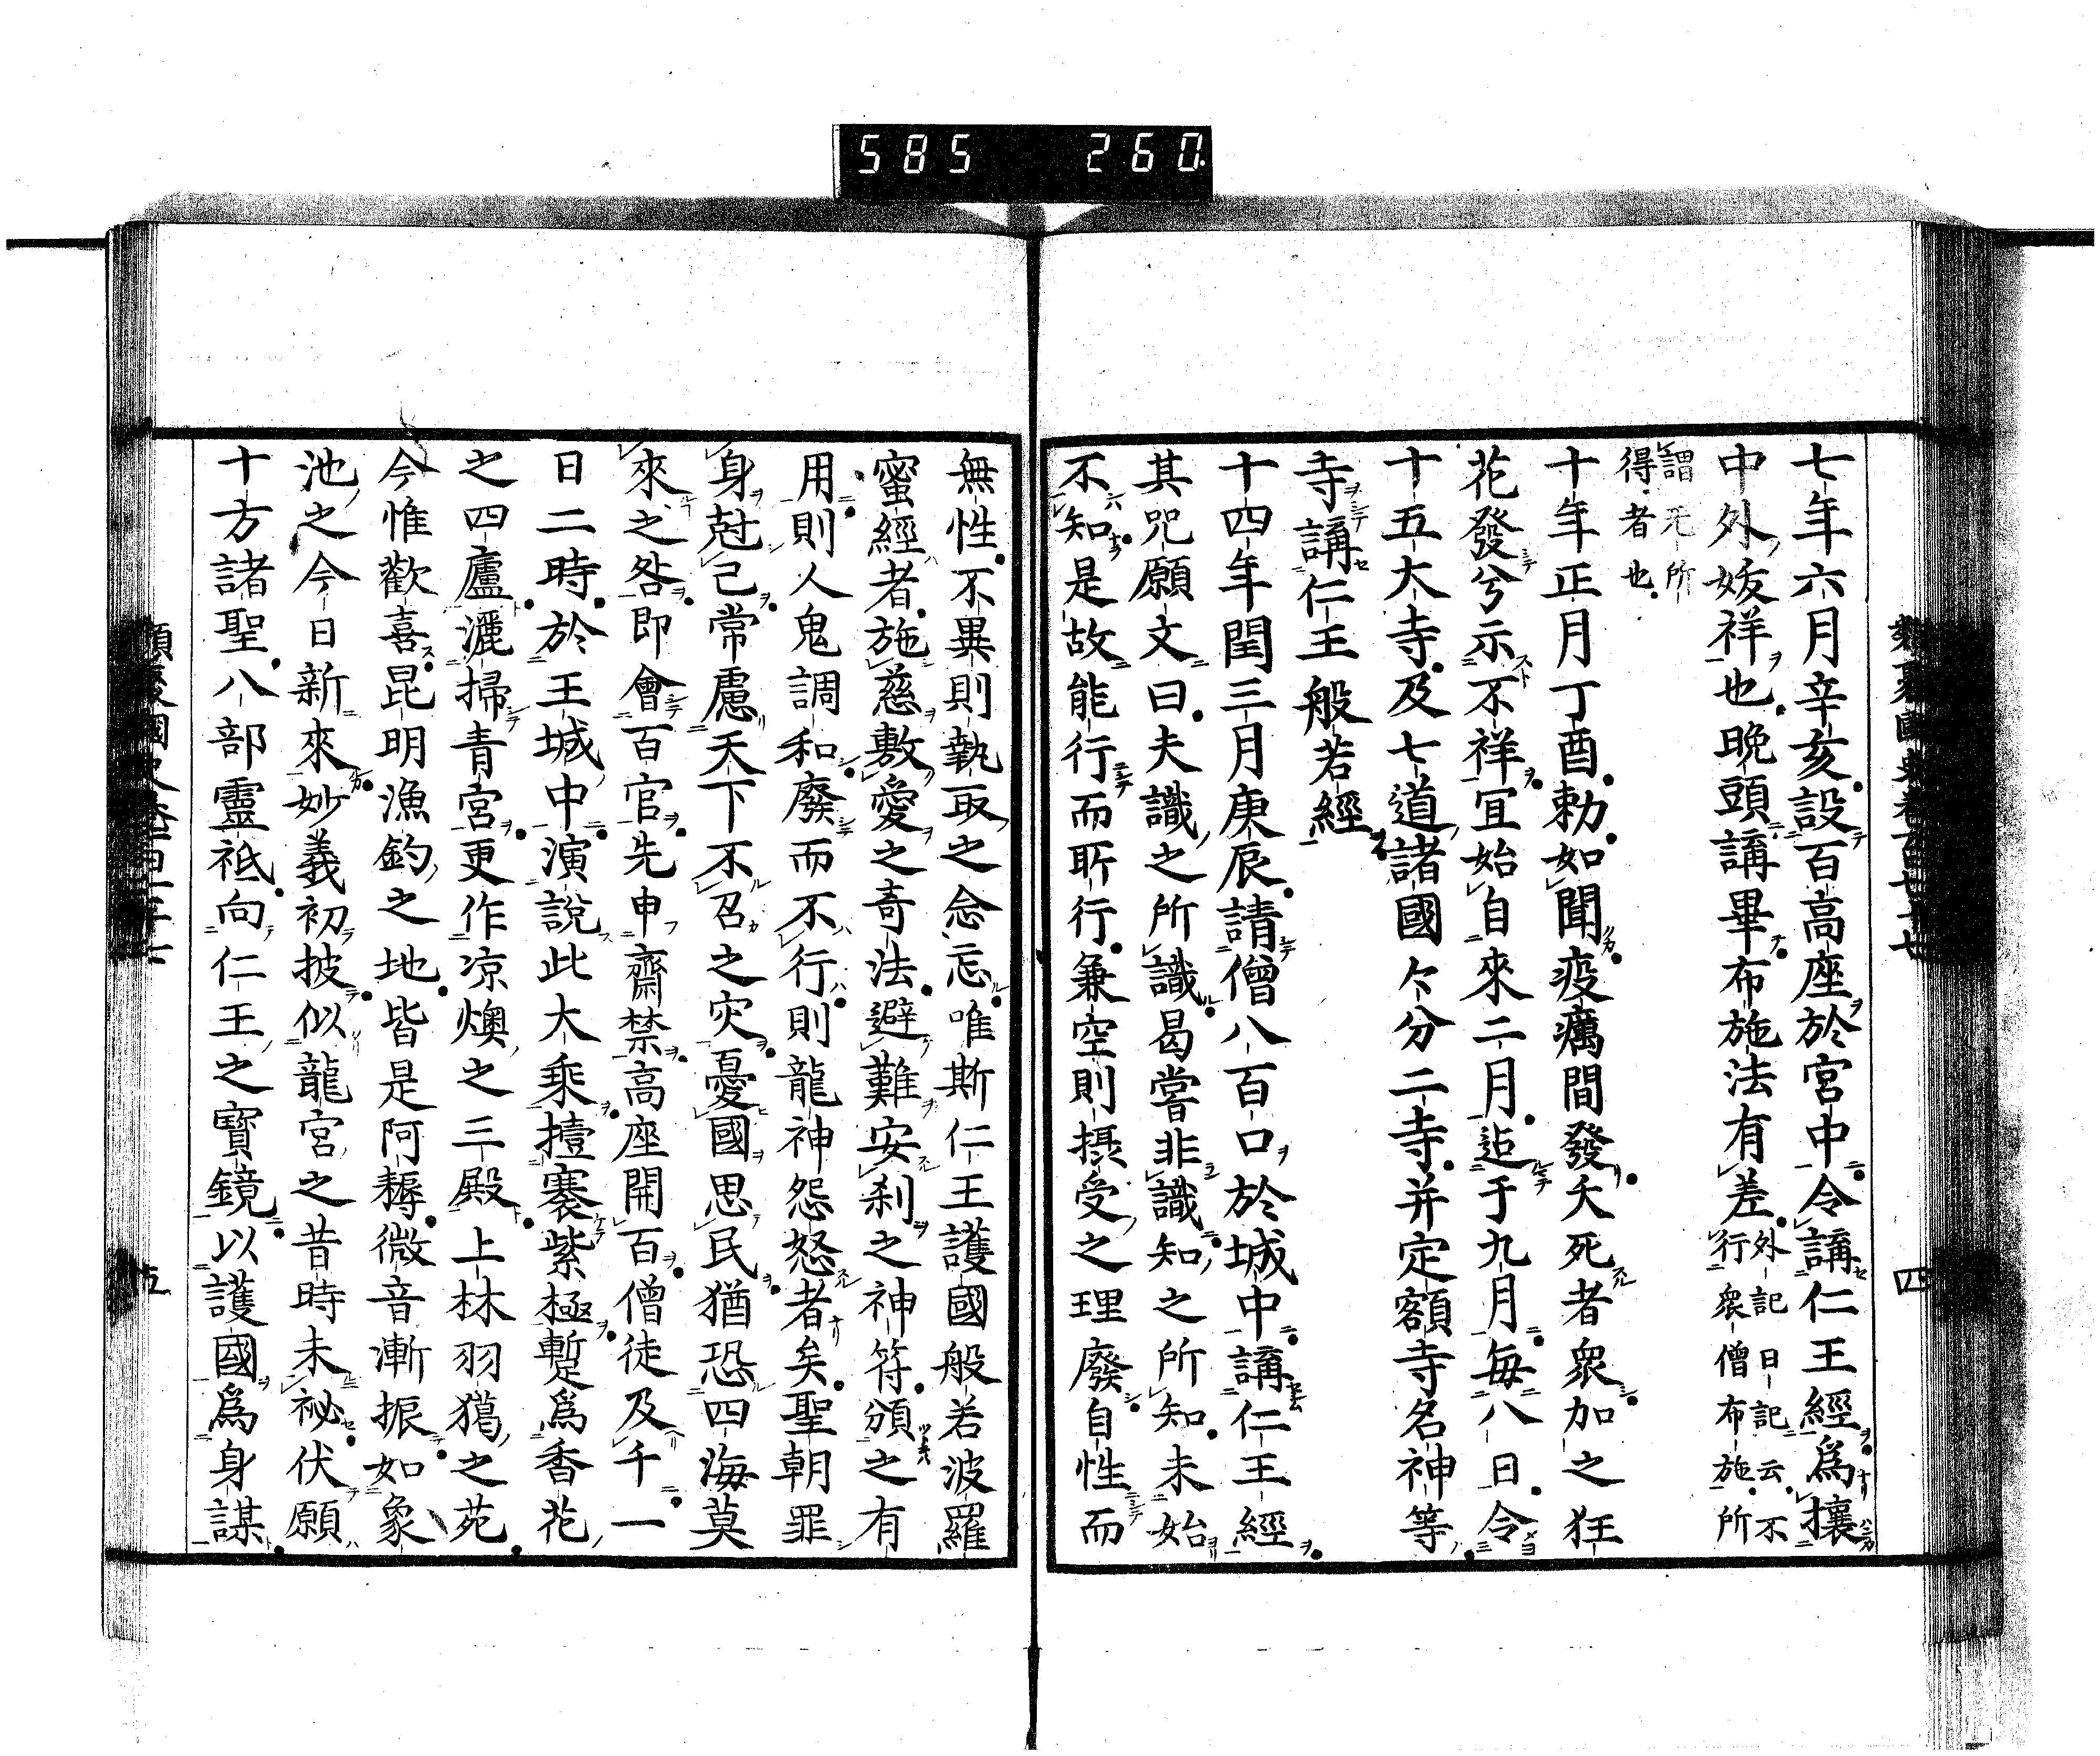 585 260
七年六月辛亥設百高座於宮中令講仁王經爲攘
中外妖祥也晩頭講畢布施法有差外記日記云不
行衆僧布施所
謂无所
得者也
十年正月丁酉勅如聞疫癘間發夭死者衆加之狂
花發兮示不祥宜始自來二月迨于九月每八日令
十五大寺及七道諸國々分二寺并定額寺名神等
寺講仁王般若經
十四年閏三月庚辰請僧八百口於城中講仁王經
其咒願文曰夫識之所識曷嘗非識知之所知未始
不知是故能行而所行兼空則攝受之理廢自性而
四
無性不異則執取之念忘唯斯仁王護國般若波羅
蜜經者施慈敷愛之奇法避難安刹之神符頒之有
用則人鬼調和廢而不行則龍神怨怒者矣聖朝罪
身尅己常慮天下不召之灾憂國思民猶恐四海莫
來之咎即會百官先申齋禁高座開百僧徒及千一
日二時於王城中演說此大乘撎褰紫極蹔爲香花
之四廬灑掃青宮更作凉燠之三殿上林羽獵之苑
今惟歡喜昆明漁釣之地皆是阿耨微音漸振如象
池之今日新來妙義初披似龍宮之昔時未祕伏願
十方諸聖八部靈祇向仁王之寶鏡以護國爲身謀
五